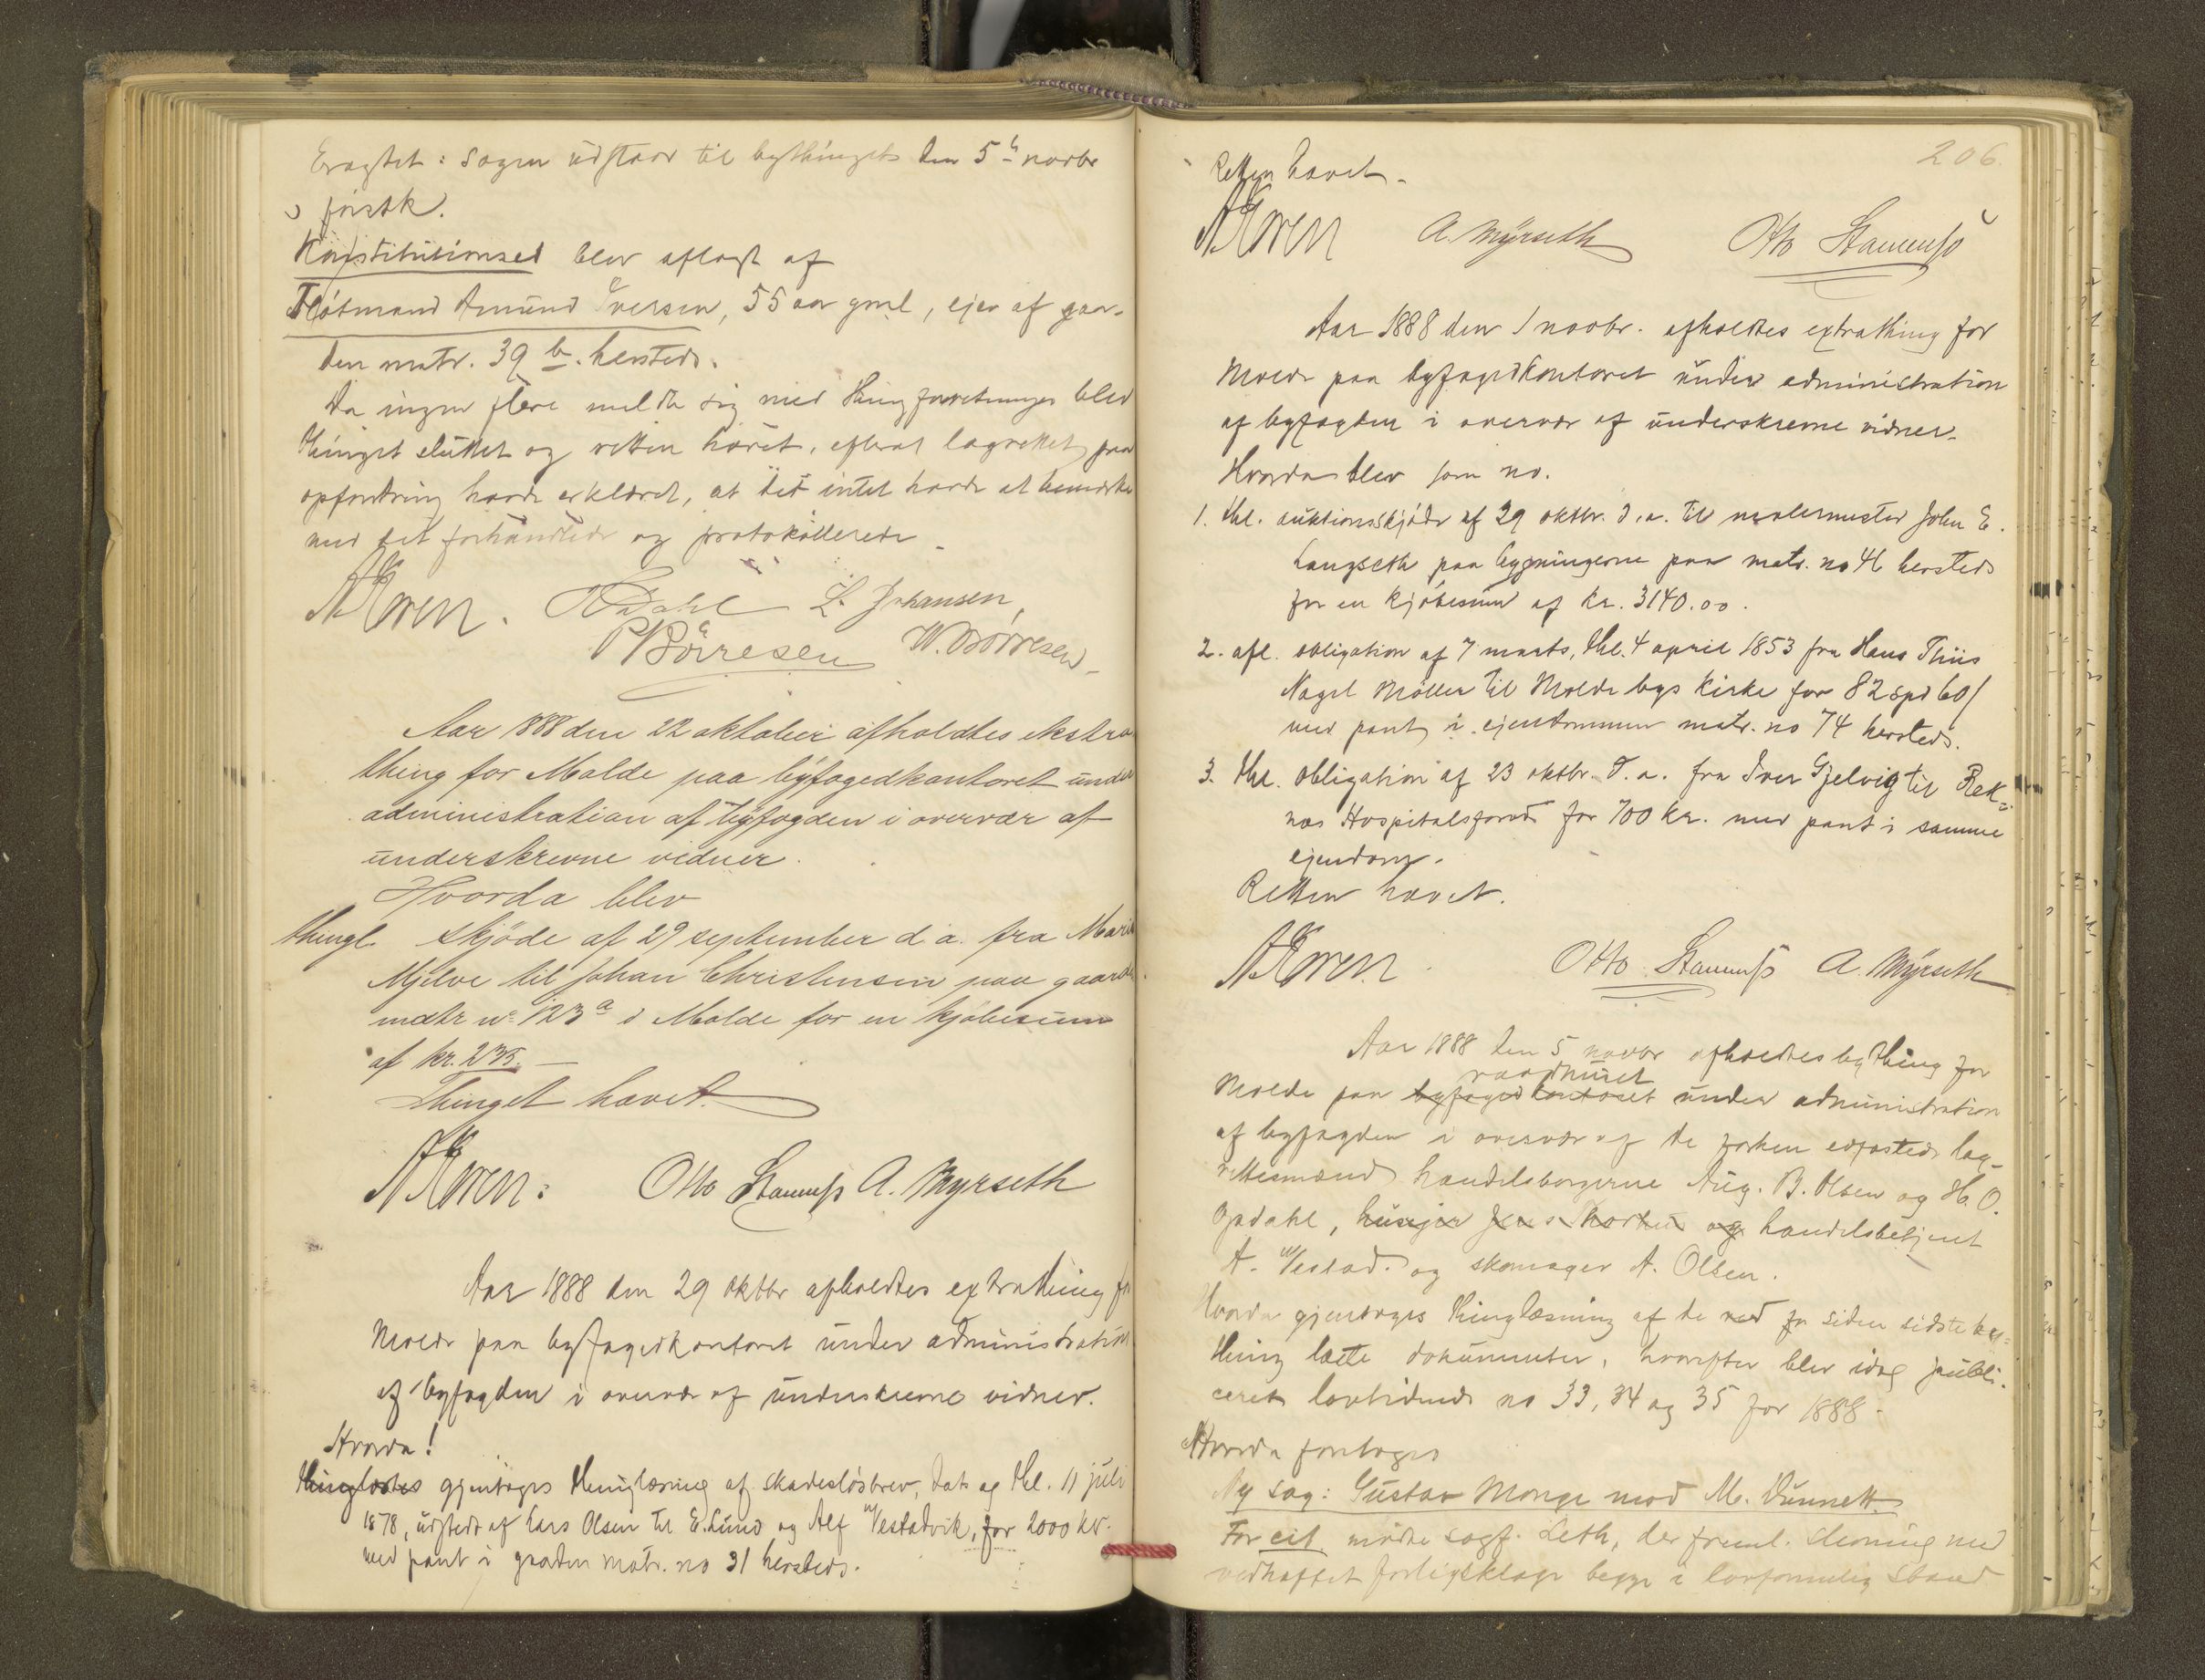 Eragtet: Sagen udstaar til bythinget den 5te novbr
førstk.
Konstitutionsed blev aflagt af
Fløtmand Amund Iversen, 55 aar gml, ejer af gaar-
den matr. 39 b. hersteds.
Da ingen flere meldte sig med thingforretninger blev
thinget sluttet og retten hævet, efterat lagrettet paa
opfordring havde erklæret, at det intet havde at bemærke
ved det forhandlede og protokollerede
Dahl L. Johansen,
P Børresen W. Børresen
Aar 1888 den 22 oktober afholdtes ekstra
thing for Molde paa byfogedkontoret under
administration af byfogden i overvær af
underskrevne vidner.
Hvorda blev
thingl. skjøde af 29 september d. a. fra Marit
Mjelve til Johan Christensen paa gaarden
matr no 123 a i Molde for en kjøbesum
af kr. 235.
Thinget hævet.
Otto Stamnsø A. Myrseth
Aar 1888 den 29 oktbr afholdtes extrathing for
Molde paa byfogedkontoret under administration
af byfogden i overvær af underskrevne vidner.
Hvorda!
Thinglæstes gjentoges thinglæsning af skadesløsbrev, dat. og thl. 11 juli
1878, udstedt af Lars Olsen til E. Lund og Alf Vestadvik, for 2000 kr.
med pant i gaarden matr. no 31 hersteds.
206.
Retten hævet.
A. Myrseth Otto Stamnsø
Aar 1888 den 1 novbr. afholdtes extrathing for
Molde paa byfogedkontoret under administration
af byfogden i overvær af underskrevne vidner.
Hvorda blev som no.
1. thl. auktionsskjøde af 29 oktbr. d. a. til malermester John E.
Langseth paa bygningerne paa matr. no 46 hersteds
for en kjøbesum af kr. 3140.00.
2. afl. obligation af 7 marts, thl. 4 april 1853 fra Hans Thiis
Nagel Møller til Molde bys kirke for 82 spd 60 ß
med pant i ejendommen matr. no 74 hersteds.
3. thl. obligation af 23 oktbr. d. a. fra Iver Gjelvig til Rek-
næs Hospitalsfond for 700 kr. med pant i samme
ejendom.
Retten hævet.
Otto Stamnsø A. Myrseth
Aar 1888 den 5 novbr afholdtes bything for
raadhuset
Molde paa byfogedkontoret under administration
af byfogden i overvær af de forhen edfæstede lag-
rettesmænd handelsborgerne Aug. B. Olsen og H. O.
Opdahl, husejer og handelsbetjent
A. Vestad og skomager A. Olsen.
Hvorda gjentoges thinglæsning af de ved for siden sidste by-
thing læste dokumenter, hvorefter blev idag publi-
ceret lovtidende no 33, 34 og 35 for 1888.
Hvorda foretoges
Ny sag: Gustav Monge mod M. Dunnett.
For cit. mødte sagf. Leth, der freml. stevning med
vedhæftet forligsklage begge i lovformelig stand